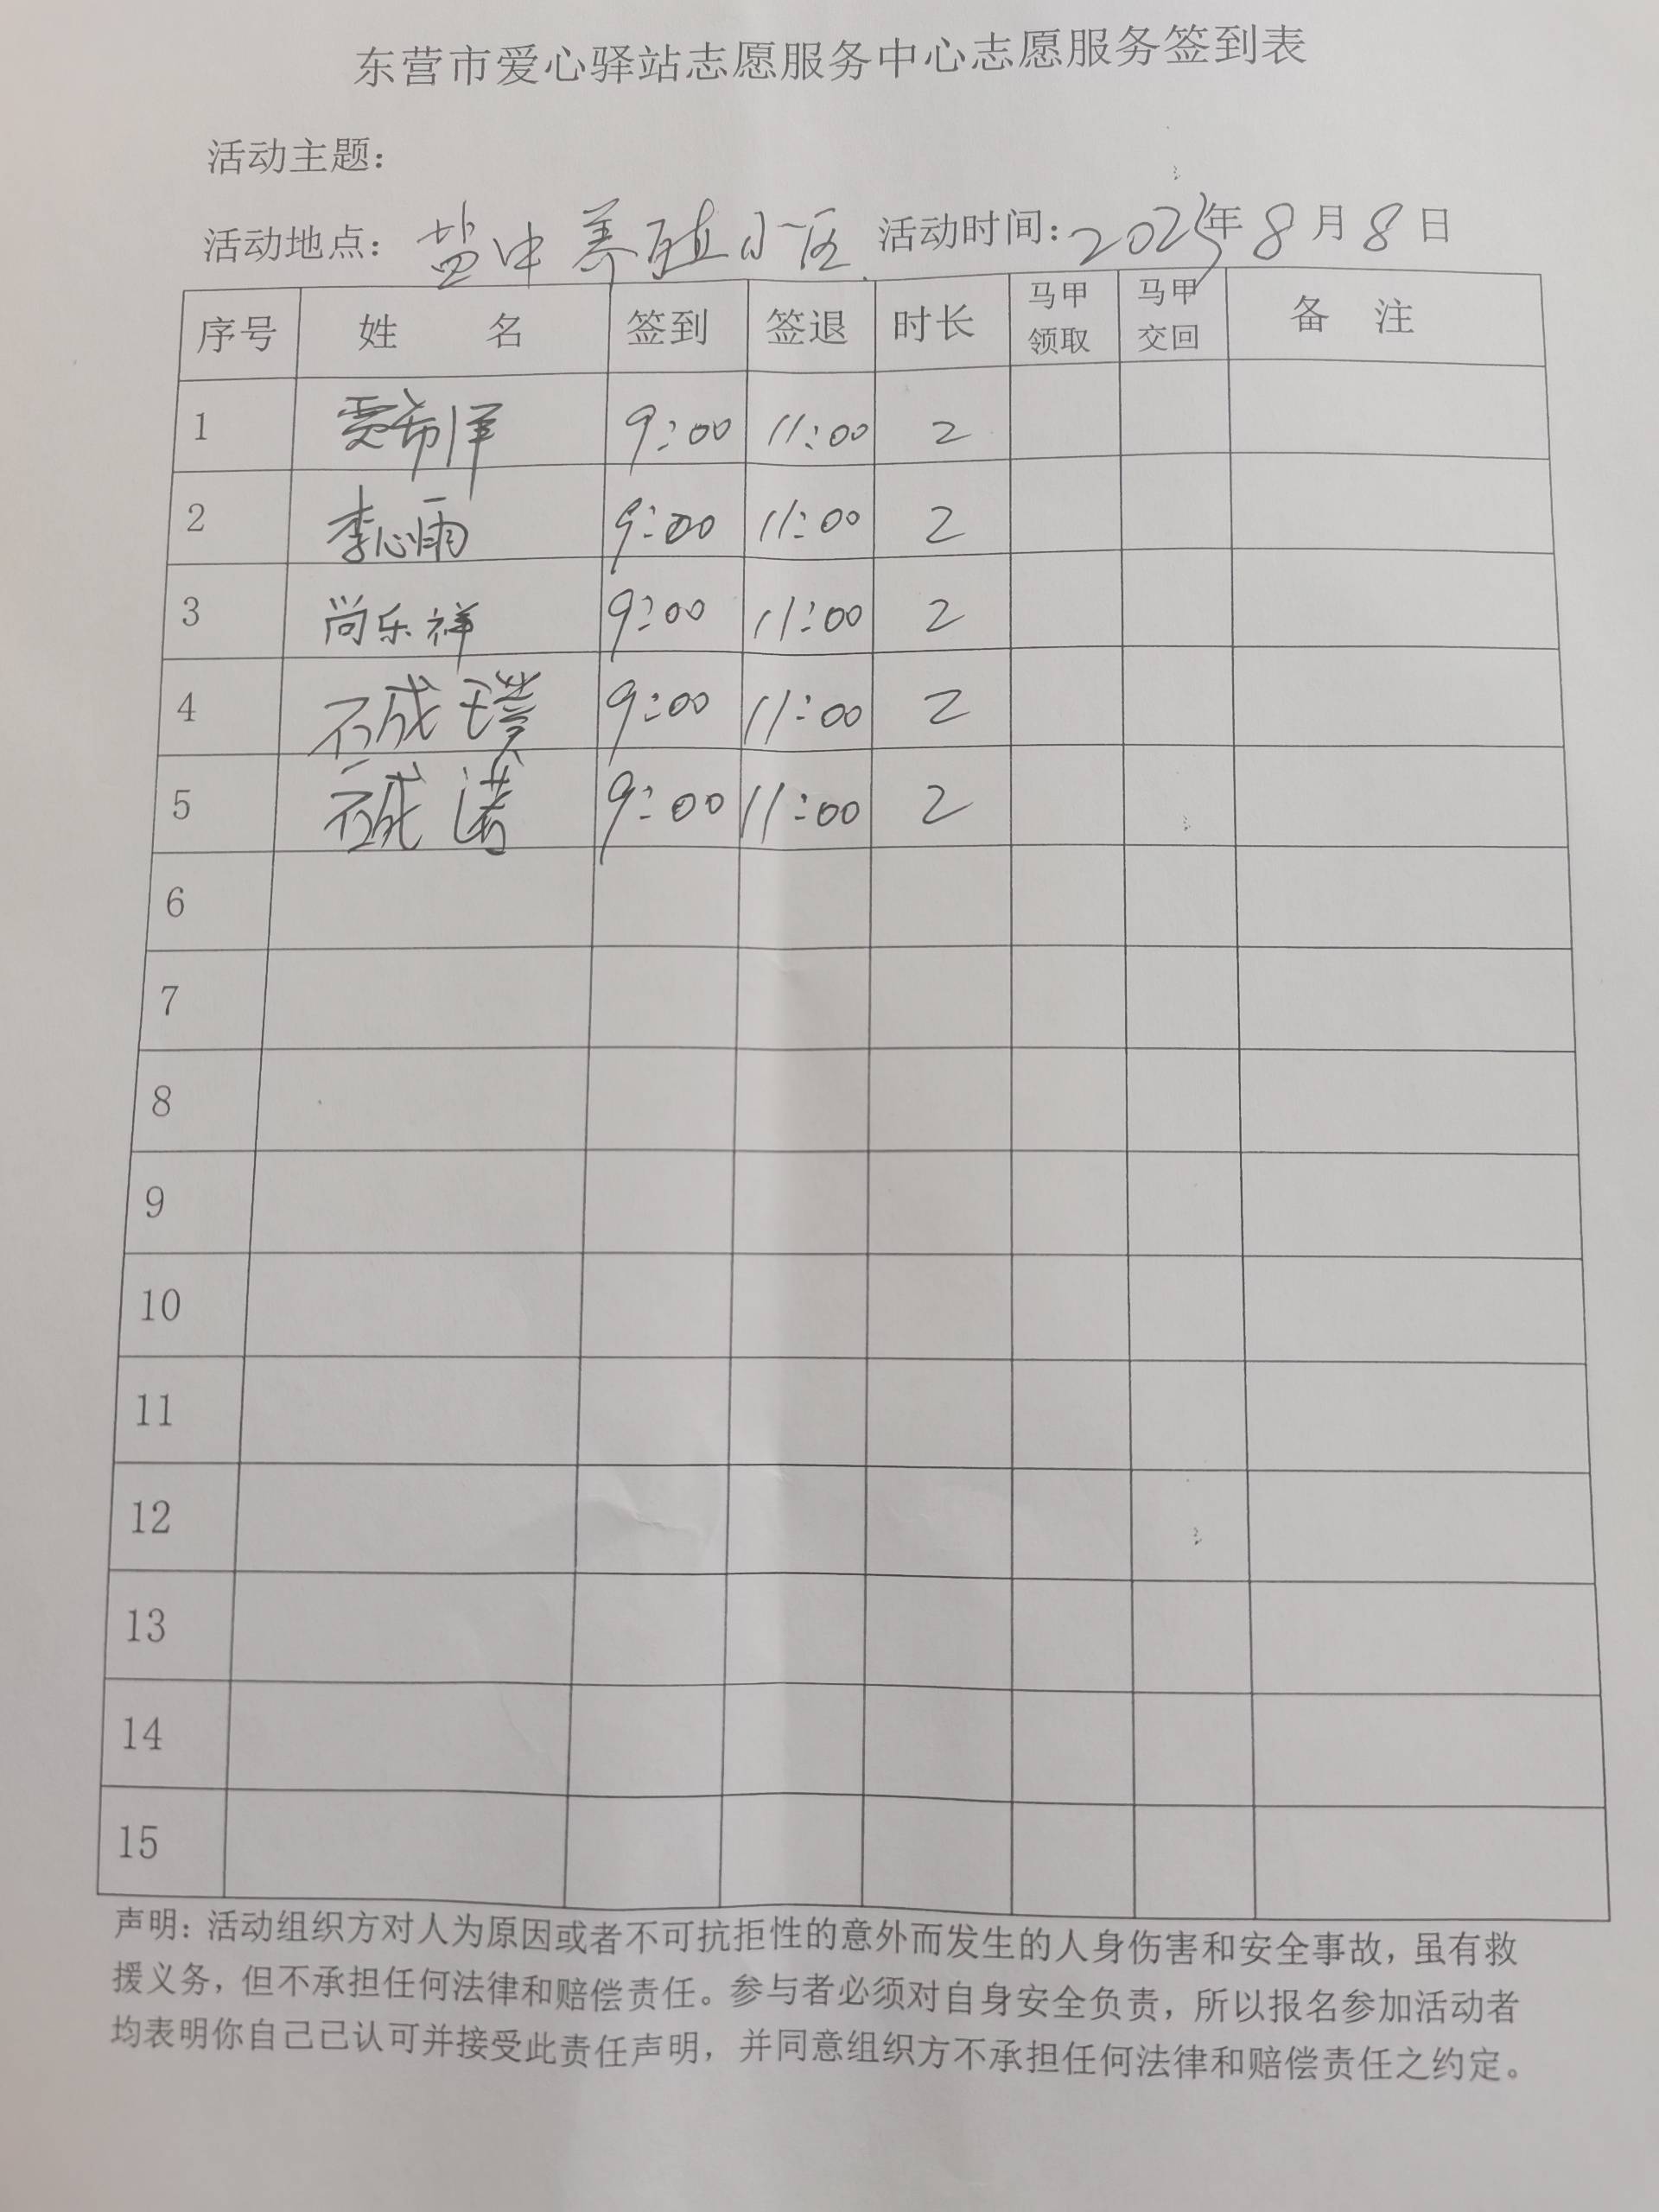 东营市爱心驿站志愿服务中心志愿服务签到表
活动主题：
活动地点： 盐中养殖小区 活动时间：2025年8月8日
序号 姓名 签到 签退 时长 马甲领取 马甲交回 备注
1 贾希泽 9:00 11:00 2
2 李心雨 9:00 11:00 2
3 尚乐祥 9:00 11:00 2
4 石成璞 9:00 11:00 2
5 石成诺 9:00 11:00 2
6
7
8
9
10
11
12
13
14
15
声明：活动组织方对人为原因或者不可抗拒性的意外而发生的人身伤害和安全事故，虽有救
援义务，但不承担任何法律和赔偿责任。参与者必须对自身安全负责，所以报名参加活动者
均表明你自己己认可并接受此责任声明，并同意组织方不承担任何法律和赔偿责任之约定。